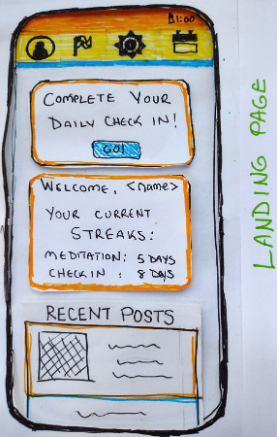 11:00
COMPLETE YOUR
DAILY CHECK IN!
GO!
WELCOME, <name>
YOUR CURRENT
STREAKS:
MEDITATION: 5 DAYS
CHECK IN : 8 DAYS
RECENT POSTS
LANDING PAGE